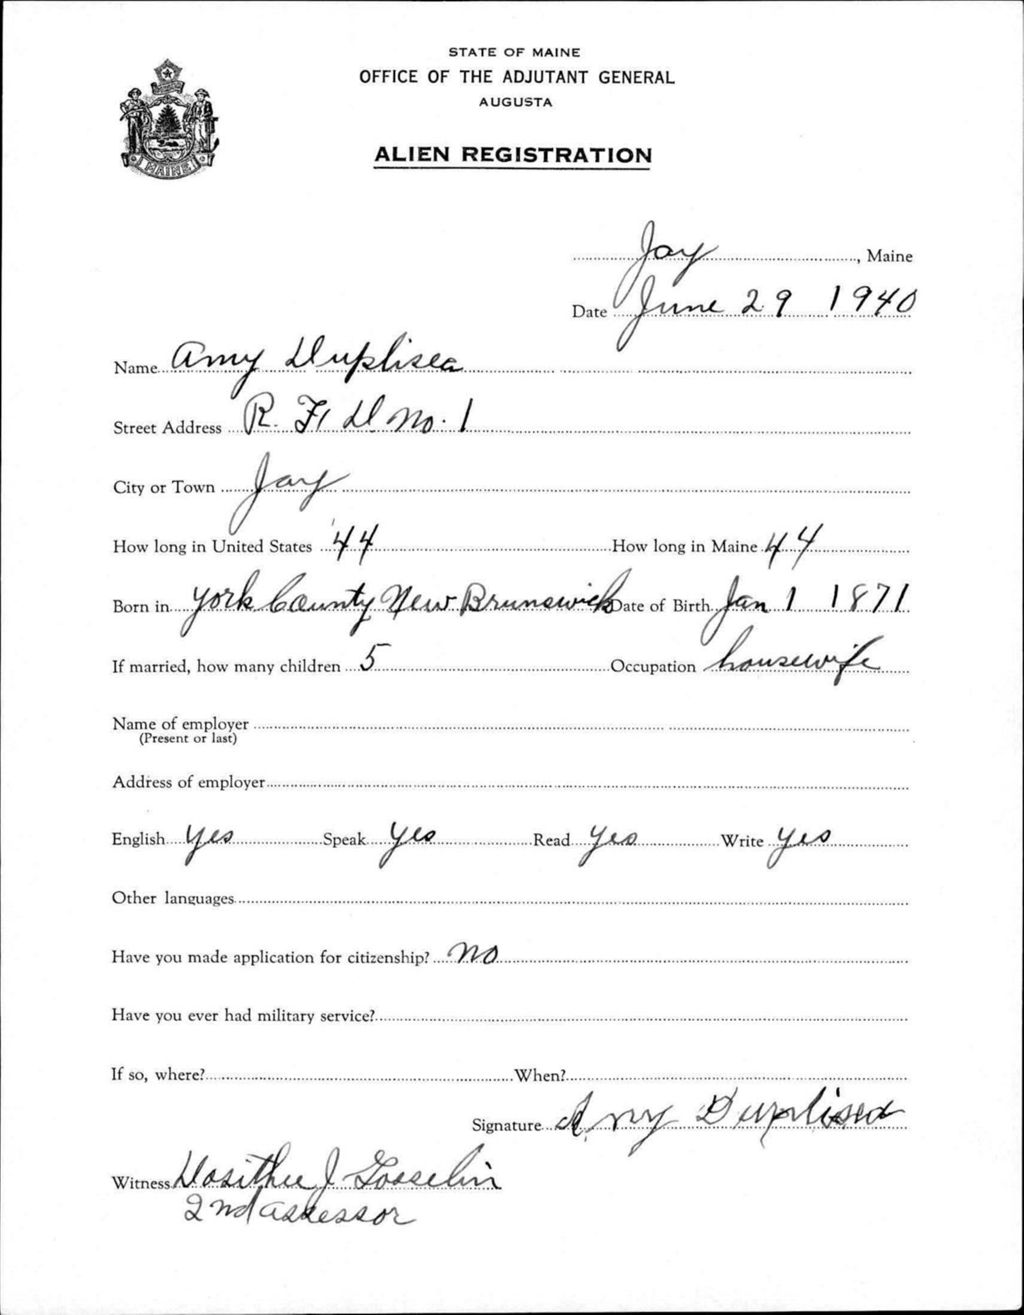 STATE OF MAINE
OFFICE OF THE ADJUTANT GENERAL
AUGUSTA
ALIEN REGISTRATION
MAINE
Jay, Maine
Date June 29 1940
Name Amy Duplisea
Street Address R. F. D. No. 1
City or Town Jay
How long in United States 44 How long in Maine 44
Born in York County New Brunswick Date of Birth Jan 1 1871
If married, how many children 5 Occupation housewife
Name of employer
(Present or last)
Address of employer
English Yes Speak Yes Read Yes Write Yes
Other languages
Have you made application for citizenship? No
Have you ever had military service?
If so, where? When?
Signature Amy Duplisea
Witness Dosithee J Gosselin
2nd assessor